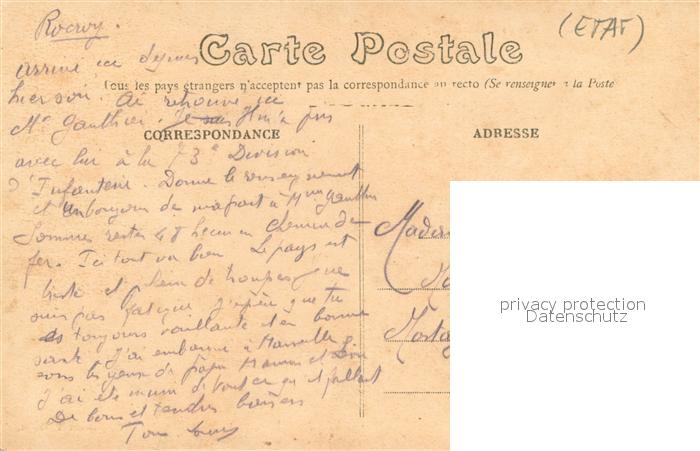 Rocroy.
(ETAT)
Carte Postale
Tous les pays étrangers n'acceptent pas la correspondance au recto (Se renseigner à la Poste
CORRESPONDANCE
ADRESSE
arrivé ici depuis
hier soir. Ai retrouvé ici
Mr Gauthier. Je suis Il m'a pris
avec lui à la 73e Division
D'Infanterie. Donne le renseignement
et un bonjour de ma part à Mme Gauthier
Sommes restés 48 heures en chemin de
fer. Ici tout va bien. Le pays est
triste et plein de troupes que
suis pas fatigué J'espère que tu
es toujours vaillante et en bonne
santé J'ai embarqué à Marseille
sous les yeux de papa Maman et
J'ai été muni de tout ce qu'il fallait
De bons et tendres baisers
Ton
Madam
Mortag
privacy protection
Datenschutz